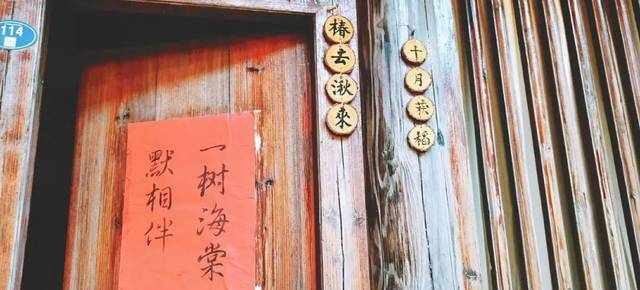 114
椿去湫來
十月获稻
一树海棠
默相伴